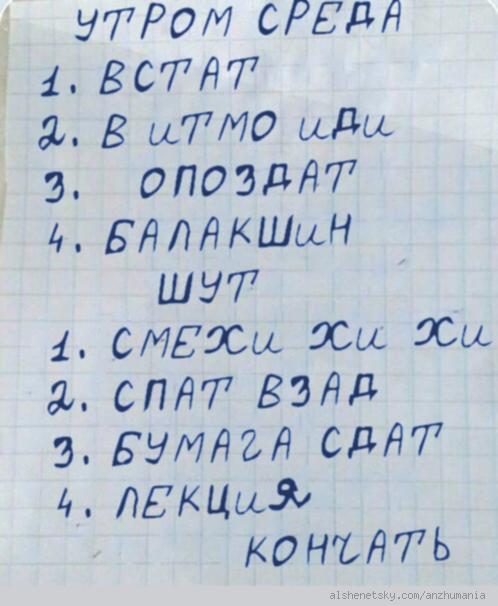 УТРОМ СРЕДА
1. ВСТАТ
2. В ИТМО ИДИ
3. ОПОЗДАТ
4. БАЛАКШИН
ШУТ
1. СМЕХИ ХИ ХИ
2. СПАТ ВЗАД
3. БУМАГА СДАТ
4. ЛЕКЦИЯ
КОНЧАТЬ
alshenetsky.com/anzhumania